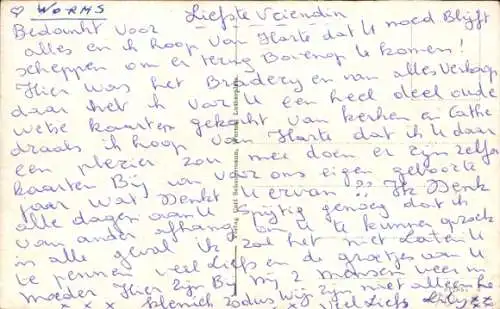 ♡ WORMS
Liefste Vriendin
Bedankt voor alles en ik hoop van Harte dat U moed Blijft
scheppen om er terug Bovenop te komen!
Hier was het Bradery en van alles Verkoop
daar heb ik voor U een heel deel oude
wetse kaarten gekocht van kerken en Cathe
draals ik hoop van Harte dat ik U daar
een plezier zou mee doen er zijn zelfs
kaarten Bij van voor ons eigen geboorte
jaar wat Denkt U ervan ?? Ik Denk
alle dagen aan U spijtig genoeg dat ik
van ander afhang om U te kunnen
in alle geval ik zal het niet Laten U
te pennen veel Liefs en de groetjes van U
moeder Hier zijn Bij mij 2 mensen
zodus wij zijn niet alleen
x x x veel Liefs xx
Verlag Carl